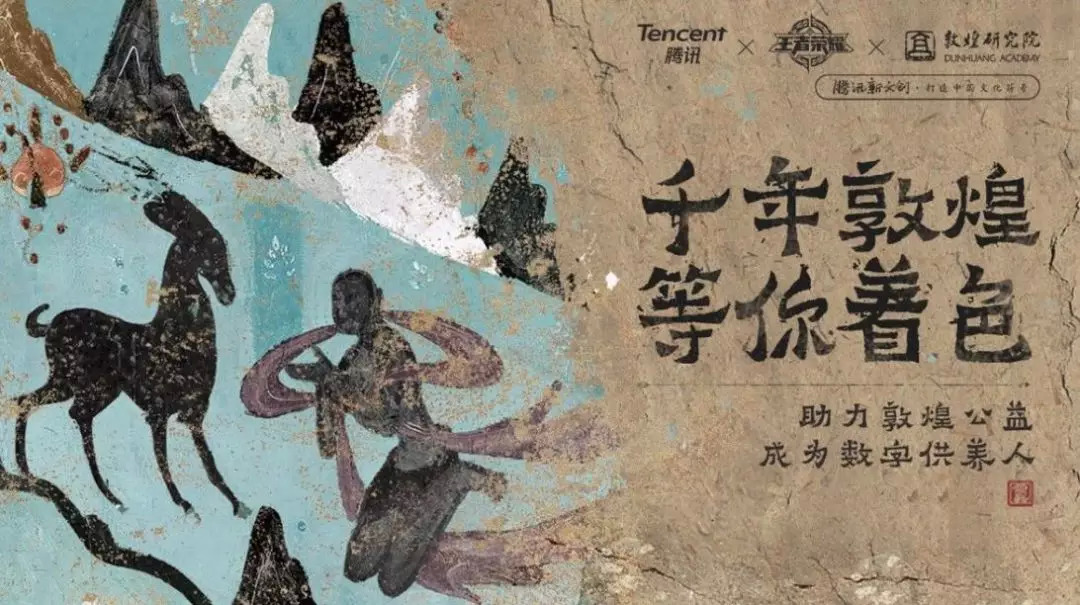 Tencent
腾讯
×
王者荣耀
×
敦煌研究院
DUNHUANG ACADEMY
腾讯新文创·打造中国文化符号
千年敦煌
等你着色
助力敦煌公益
成为数字供养人